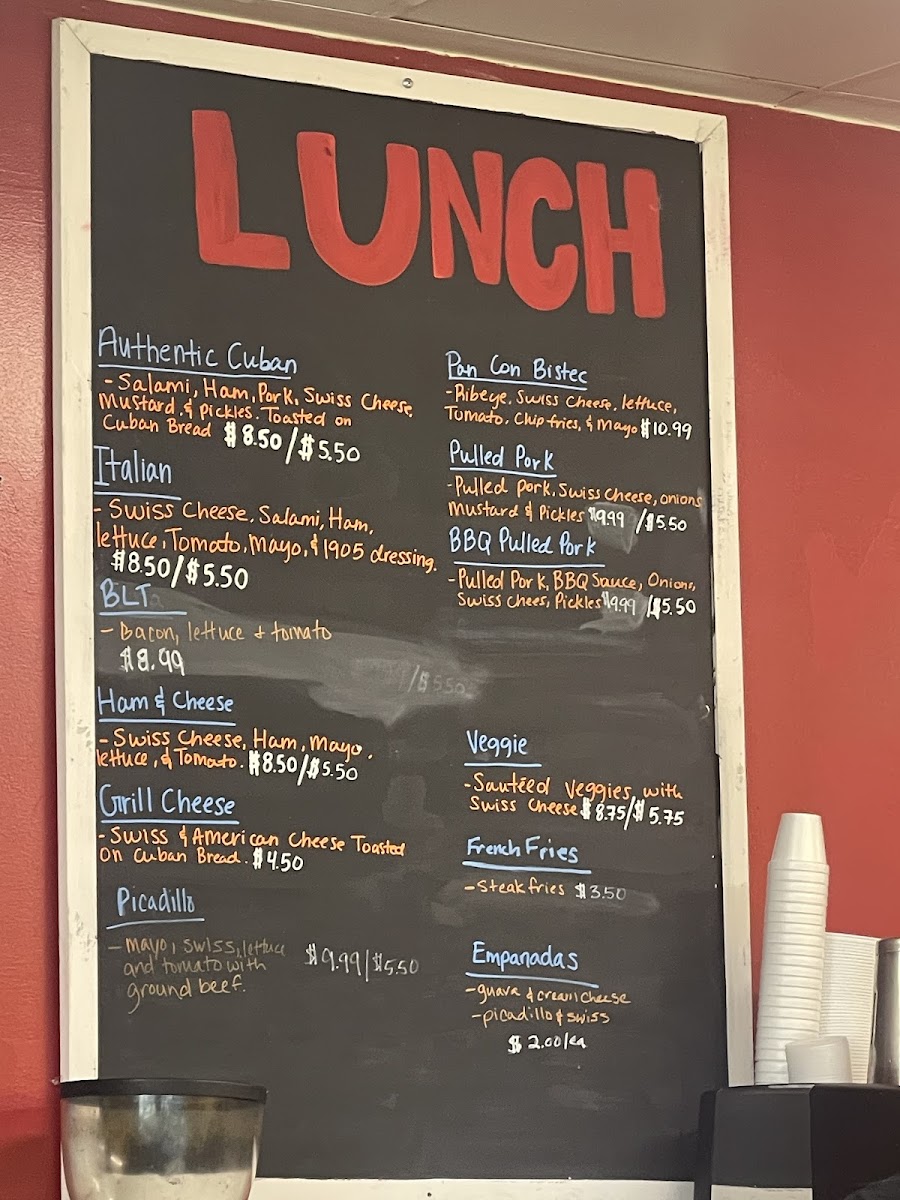 LUNCH
Authentic Cuban
- Salami, Ham, Pork, Swiss Cheese,
Mustard, & Pickles. Toasted on
Cuban Bread $8.50/$5.50
Italian
- Swiss Cheese, Salami, Ham,
lettuce, Tomato, Mayo, & 1905 dressing.
$8.50/$5.50
BLT
- Bacon, lettuce + tomato
$8.99
Ham & Cheese
- Swiss Cheese, Ham, Mayo,
lettuce, & Tomato. $8.50/$5.50
Grill Cheese
- Swiss & American Cheese Toasted
on Cuban Bread. $4.50
Picadillo
- mayo, swiss, lettuce
and tomato with
ground beef.
$9.99/$5.50
Pan Con Bistec
- Ribeye, Swiss Cheese, lettuce,
Tomato, Chip fries, & Mayo $10.99
Pulled Pork
- Pulled pork, Swiss Cheese, onions
Mustard & Pickles $9.99 /$5.50
BBQ Pulled Pork
- Pulled Pork, BBQ Sauce, Onions,
Swiss Chees, Pickles $9.99 /$5.50
/$5.50
Veggie
- Sautéed Veggies with
Swiss Cheese $8.75/$5.75
French Fries
- Steak fries $3.50
Empanadas
- guava & cream cheese
- picadillo & swiss
$2.00/ea